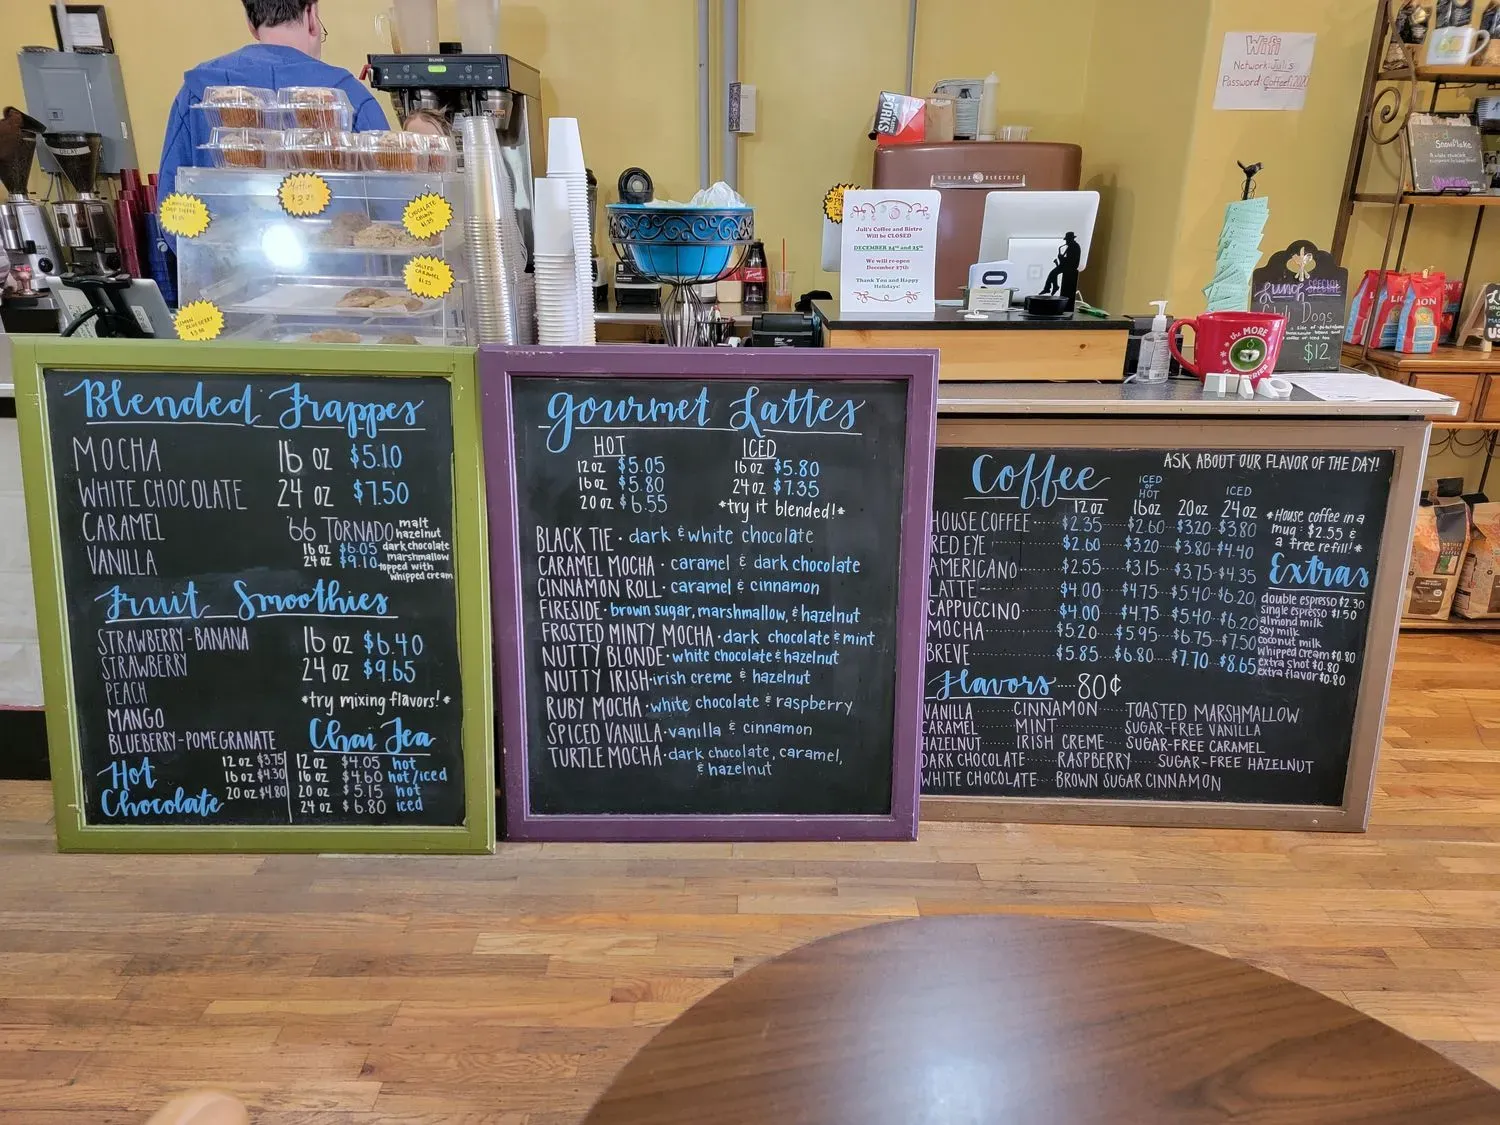 Wifi
Network: Juli's
Password: Coffee!2020
BUNN
Muffin
$3.25
CHOCOLATE
CHUNK
SALTED
CARAMEL
GENERAL ELECTRIC
FORKS
Juli's Coffee and Bistro
Will be CLOSED
DECEMBER 24th and 25th
We will re-open
December 27th
Thank You and Happy
Holidays!
Snowflake
Lunch Special
Dogs
$12
the MORE
LION
Blended Frappes
MOCHA 16 oz $5.10
WHITE CHOCOLATE 24 oz $7.50
CARAMEL
VANILLA
'66 TORNADO malt
hazelnut
16 oz $6.05 dark chocolate
24 oz $9.10 marshmallow
topped with
whipped cream
Fruit Smoothies
STRAWBERRY-BANANA 16 oz $6.40
STRAWBERRY 24 oz $9.65
PEACH
*try mixing flavors!*
MANGO
BLUEBERRY-POMEGRANATE
Hot
Chocolate
12 oz $3.75
16 oz $4.30
20 oz $4.80
Chai Tea
12 oz $4.05 hot
16 oz $4.60 hot/iced
20 oz $5.15 hot
24 oz $6.80 iced
Gourmet Lattes
HOT ICED
12 oz $5.05 16 oz $5.80
16 oz $5.80 24 oz $7.35
20 oz $6.55 *try it blended!*
BLACK TIE · dark & white chocolate
CARAMEL MOCHA · caramel & dark chocolate
CINNAMON ROLL · caramel & cinnamon
FIRESIDE · brown sugar, marshmallow, & hazelnut
FROSTED MINTY MOCHA · dark chocolate & mint
NUTTY BLONDE · white chocolate & hazelnut
NUTTY IRISH · irish creme & hazelnut
RUBY MOCHA · white chocolate & raspberry
SPICED VANILLA · vanilla & cinnamon
TURTLE MOCHA · dark chocolate, caramel,
& hazelnut
ASK ABOUT OUR FLAVOR OF THE DAY!
Coffee
ICED
or
HOT ICED
12 oz 16oz 20oz 24oz
HOUSE COFFEE $2.35 $2.60 $3.20 $3.80
RED EYE $2.60 $3.20 $3.80 $4.40
AMERICANO $2.55 $3.15 $3.75 $4.35
LATTE $4.00 $4.75 $5.40 $6.20
CAPPUCCINO $4.00 $4.75 $5.40 $6.20
MOCHA $5.20 $5.95 $6.75 $7.50
BREVE $5.85 $6.80 $7.70 $8.65
*House coffee in a
mug: $2.55 &
a free refill!*
Extras
double espresso $2.30
single espresso $1.50
almond milk
soy milk
coconut milk
whipped cream $0.80
extra shot $0.80
extra flavor $0.80
Flavors ---- 80¢
VANILLA CINNAMON TOASTED MARSHMALLOW
CARAMEL MINT SUGAR-FREE VANILLA
HAZELNUT IRISH CREME SUGAR-FREE CARAMEL
DARK CHOCOLATE RASPBERRY SUGAR-FREE HAZELNUT
WHITE CHOCOLATE BROWN SUGAR CINNAMON